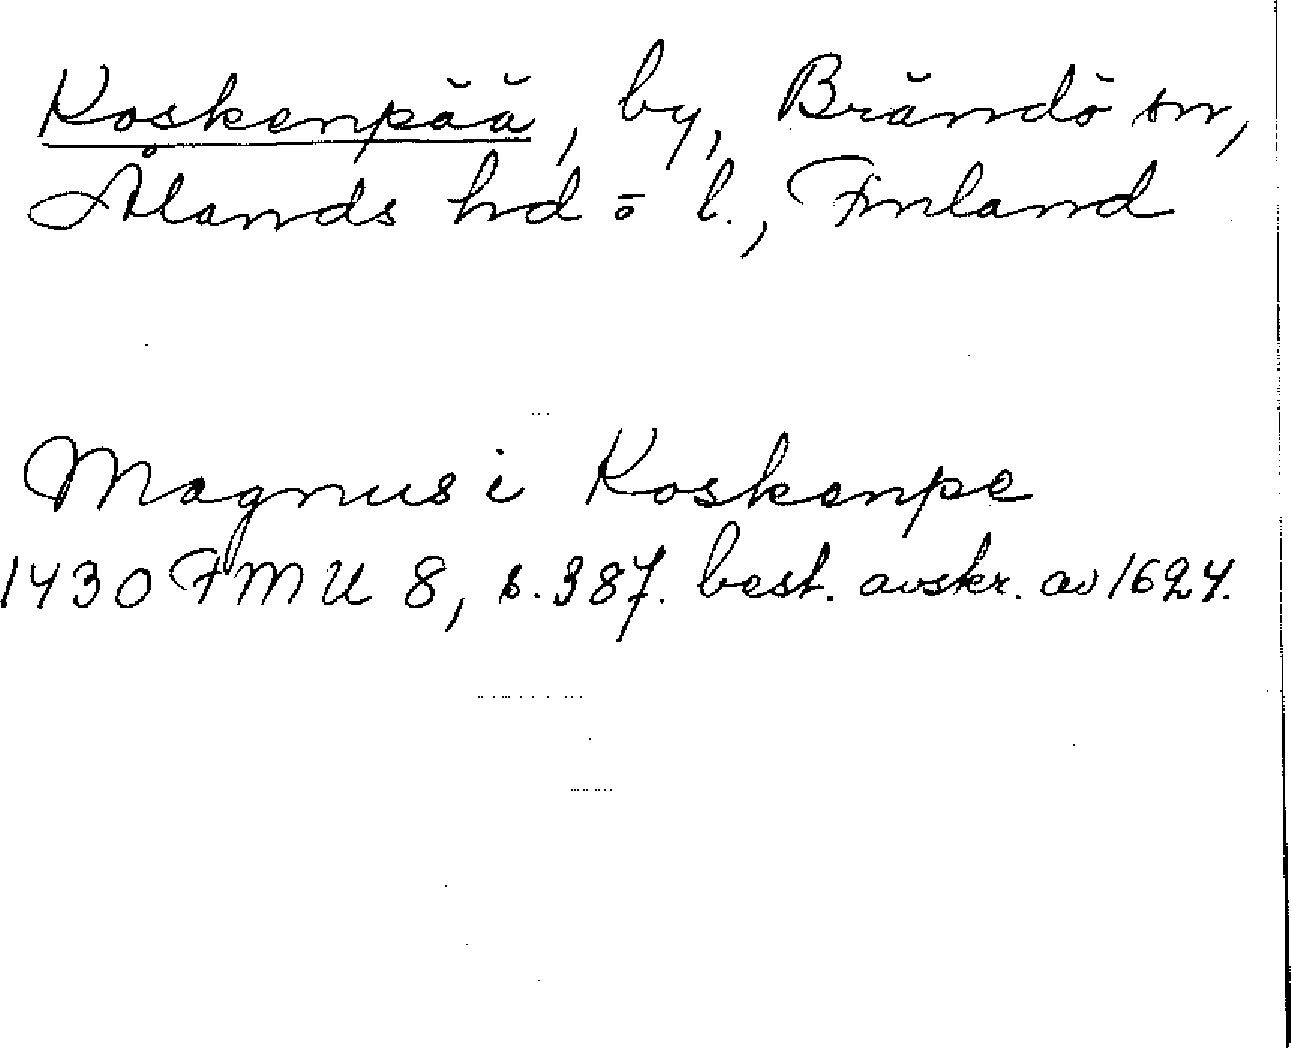 Koskenpää, by, Brändö sn,
Ålands hd o l., Finland
Magnus i Koskenpe
1430 FMU 8, s. 387. best. avskr. av 1624.